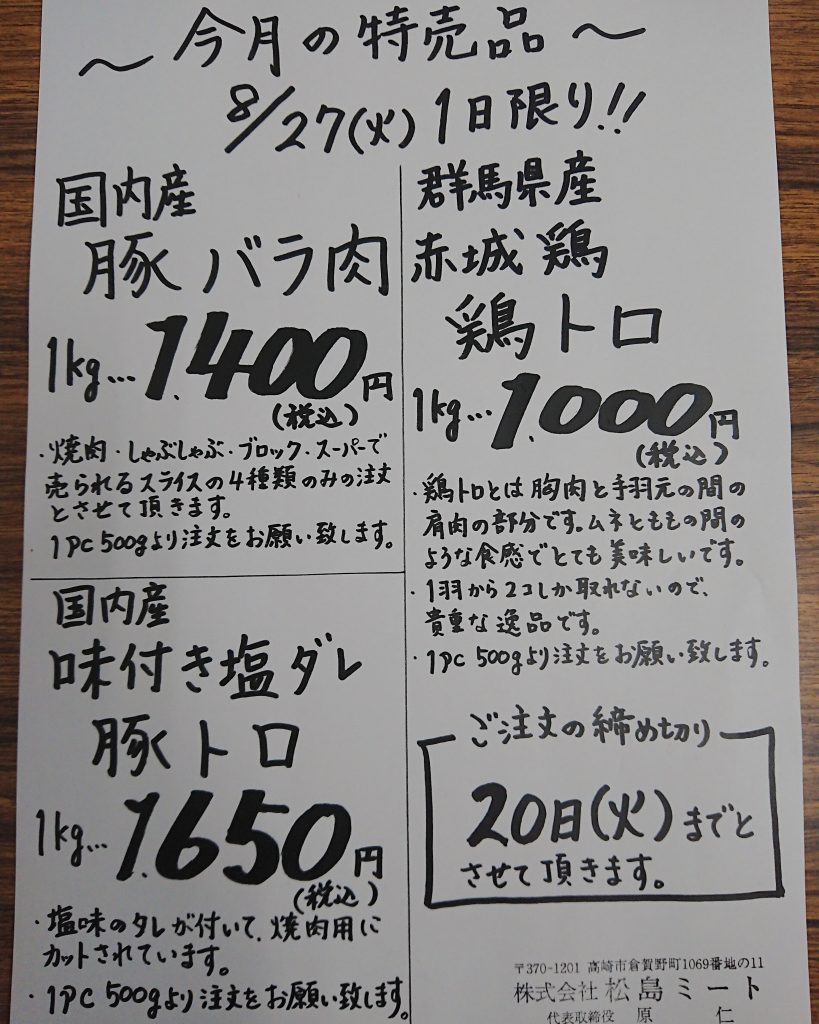 ～今月の特売品～
8/27(火)1日限り!!
国内産
豚バラ肉
1kg…1,400円
(税込)
・焼肉・しゃぶしゃぶ・ブロック・スーパーで
売られるスライスの4種類のみの注文
とさせて頂きます。
1PC 500gより注文をお願い致します。
国内産
味付き塩ダレ
豚トロ
1kg…1,650円
(税込)
・塩味のタレが付いて、焼肉用に
カットされています。
・1PC 500gより注文をお願い致します。
群馬県産
赤城鶏
鶏トロ
1kg…1,000円
(税込)
・鶏トロとは胸肉と手羽元の間の
肩肉の部分です。ムネとももの間の
ような食感でとても美味しいです。
・1羽から2コしか取れないので、
貴重な逸品です。
・1PC 500gより注文をお願い致します。
ご注文の締め切り
20日(火)までと
させて頂きます。
〒370-1201 高崎市倉賀野町1069番地の11
株式会社 松島ミート
代表取締役 原 仁